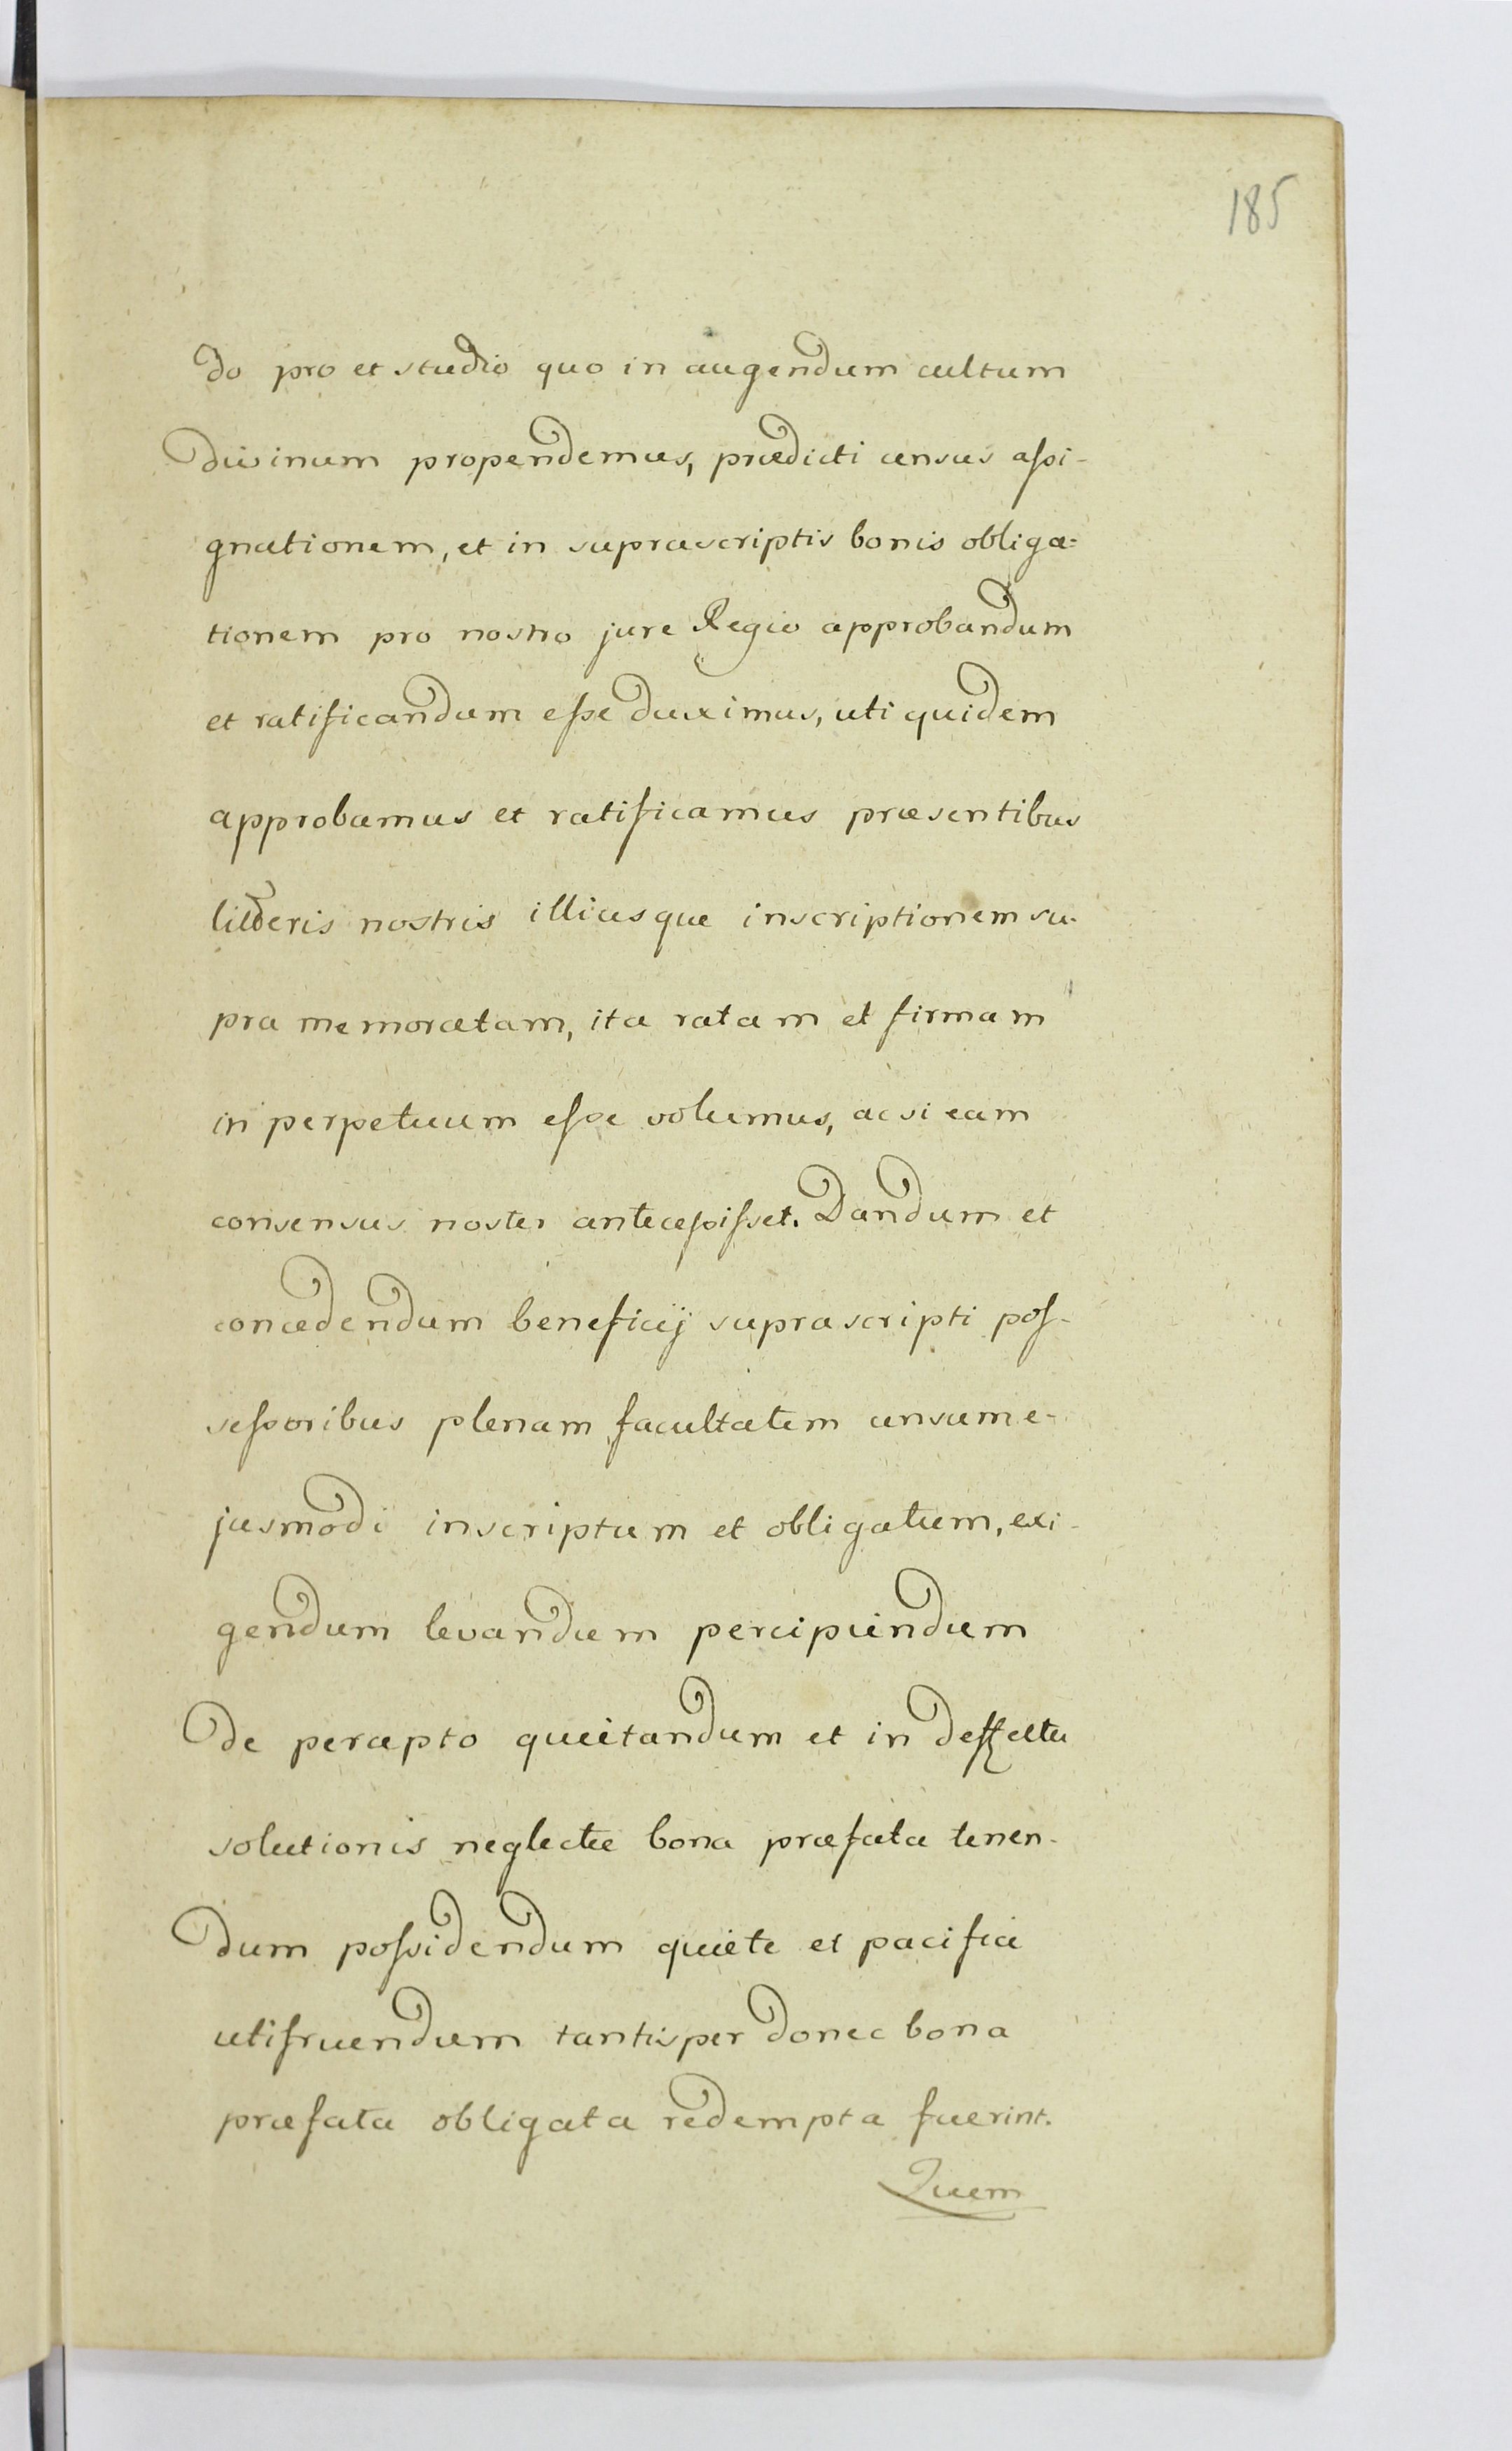 185
do pro et studio quo in augendum cultum
divinum propendemus, prædicti census assi-
gnationem, et in suprascriptis bonis obliga=
tionem pro nostro jure Regio approbandum
et ratificandum esse duximus, uti quidem
approbamus et ratificamus præsentibus
litteris nostris illiusque inscriptionem su-
pra memoratam, ita ratam et firmam
in perpetuum esse volumus, ac si eam
consensus noster antecessisset. Dandum et
concedendum beneficij suprascripti pos-
sessoribus plenam facultatem censum e-
jusmodi inscriptum et obligatum, exi-
gendum levandum percipiendum
De percepto quietandum et in deffectu
solutionis neglectæ bona præfata tenen-
dum possidendum quiete et pacifice
utifruendum tantisper donec bona
præfata obligata redempta fuerint.
Quem